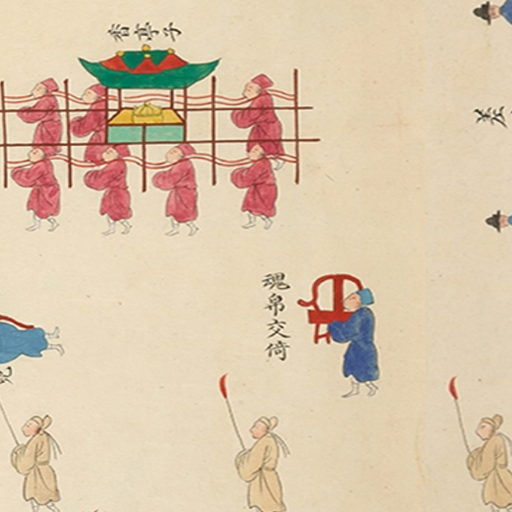 香亭子
魂帛交倚
差